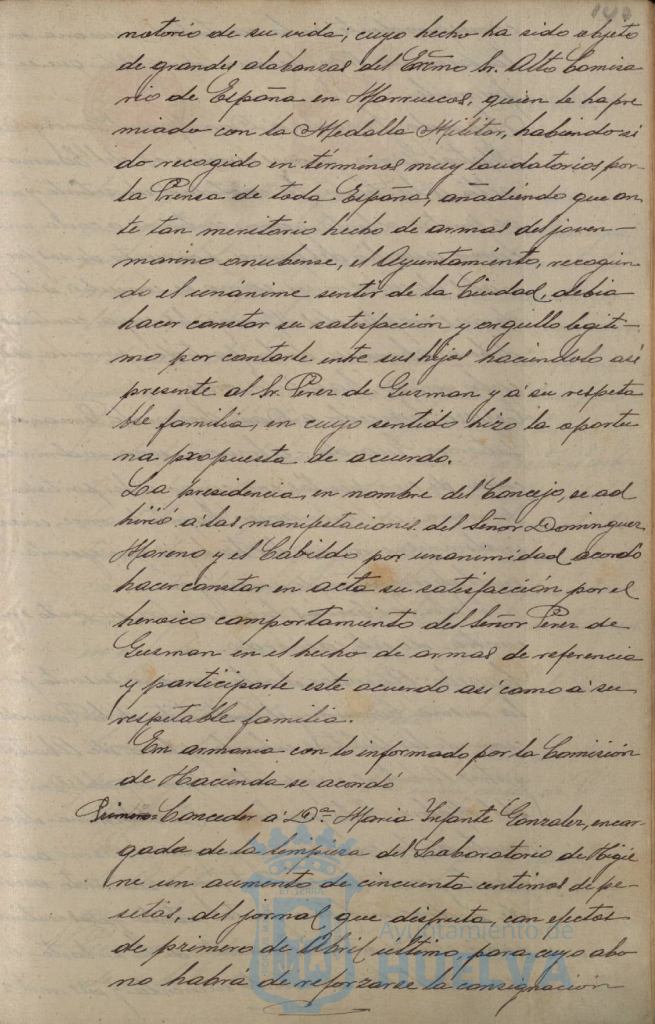 140
notorio de su vida; cuyo hecho ha sido objeto
de grandes alabanzas del Excmo Sr. Alto Comisa
rio de España en Marruecos, quien le ha pre
miado con la Medalla Militar, habiendo si
do recogido en términos muy laudatorios por
la Prensa de toda España, añadiendo que an
te tan meritorio hecho de armas del joven
marino onubense, el Ayuntamiento, recogien
do el unánime sentir de la Ciudad, debia
hacer constar su satisfacción y orgullo legiti-
mo por contarle entre sus hijos haciendolo asi
presente al Sr. Perez de Guzman y á su respeta
ble familia, en cuyo sentido hizo la oportu
na propuesta de acuerdo.
La presidencia, en nombre del Concejo, se ad
hirió á las manifestaciones del Señor Dominguez
Moreno y el Cabildo por unanimidad acordó
hacer constar en acta su satisfacción por el
heroico comportamiento del Señor Perez de
Guzman en el hecho de armas de referencia
y participarle este acuerdo asi como á su
respetable familia.
En armonia con lo informado por la Comisión
de Hacienda se acordó
Primero: Conceder á Dª Maria Infante Gonzalez, encar
gada de la limpieza del Laboratorio de Higie
ne un aumento de cincuenta centimos de pe-
setas, del jornal que disfruta, con efectos
de primero de Abril último, para cuyo abo
no habrá de reforzarse la consignación
Ayuntamiento de
HUELVA